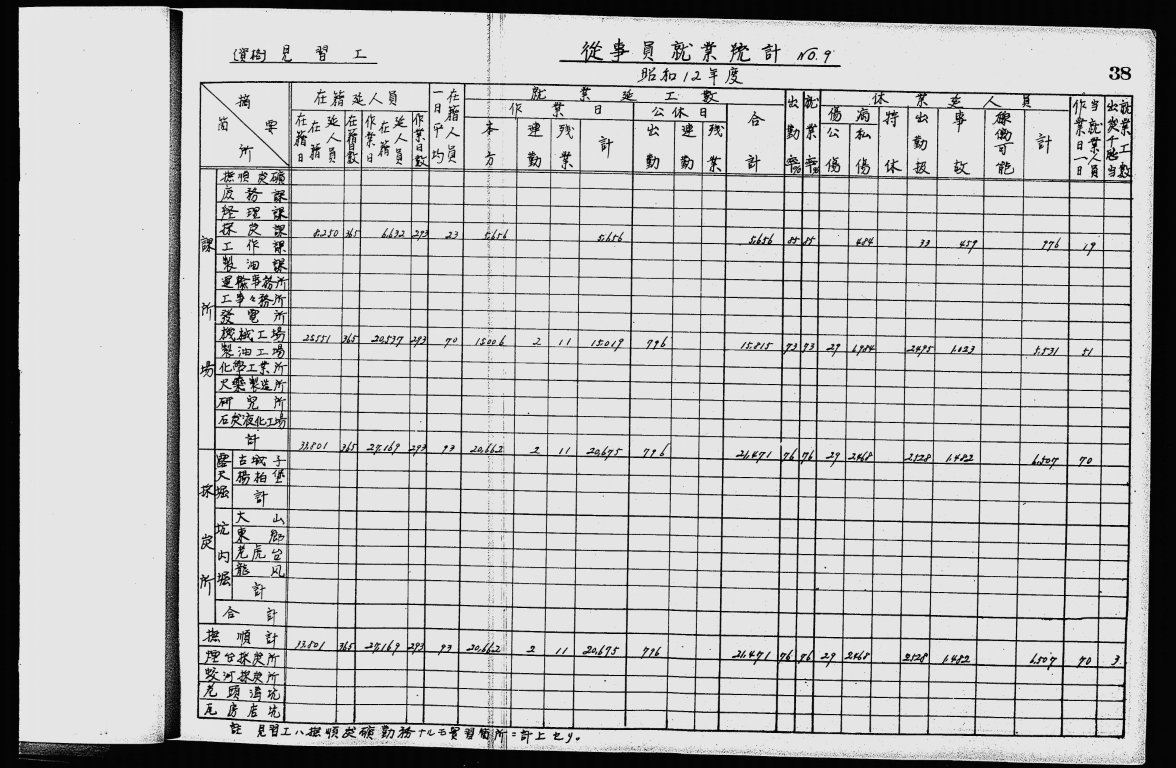 見習工
從事員就業統計 NO.9
昭和12年度
38
摘要
箇所
在籍延人員
在籍日 在籍延人員 在籍日数 作業日在籍延人員 作業日数
在籍人員一日平均
就業延工数
作業日 公休日 合計
本方 連勤 残業 計 出勤 連勤 残業
出勤率% 就業率%
休業延人員
傷病 特休 出勤扱 事故 稼働可能 計
公傷 私傷
課所場
撫順炭礦
庶務課
経理課
採炭課 8,250 365 6,632 293 23 5,656 5,656 5,656 85 85 484 33 459 976 19
工作課
製油課
運輸事務所
工事々務所
發電所
機械工場 25,551 365 20,537 293 70 15,006 2 11 15,019 796 15,815 73 73 29 1,984 2,495 1,023 5,531 51
製油工場
化學工業所
火藥製造所
研究所
石炭液化工場
計 33,801 365 27,169 293 93 20,662 2 11 20,675 796 21,471 76 76 29 2,468 2,528 1,482 6,507 70
採炭所
露天掘 古城子
楊柏堡
計
坑内掘 大山
東郷
老虎台
龍鳳
計
合計
撫順計 33,801 365 27,169 293 93 20,662 2 11 20,675 796 21,471 76 76 29 2,468 2,528 1,482 6,507 70 3
煙台採炭所
蛟河採炭所
老頭溝坑
瓦房店坑
註 見習工ハ撫順炭礦勤務ナルモ実習箇所ニ計上セリ。